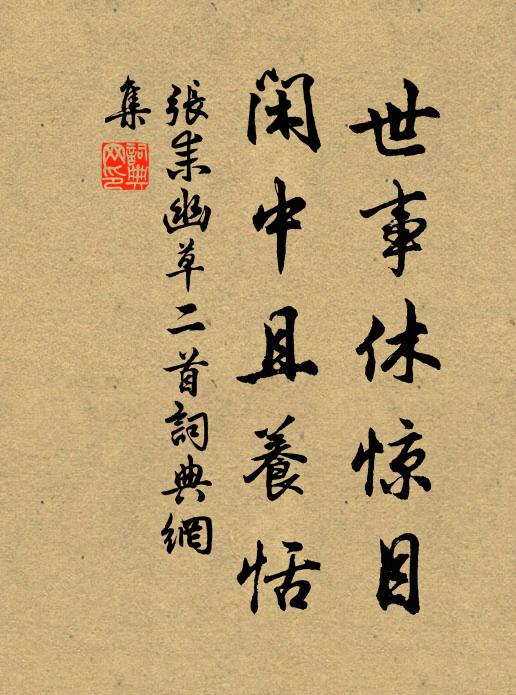 世事休惊目
閑中且養恬
張耒幽草二首詞典網
集
詞典
网印